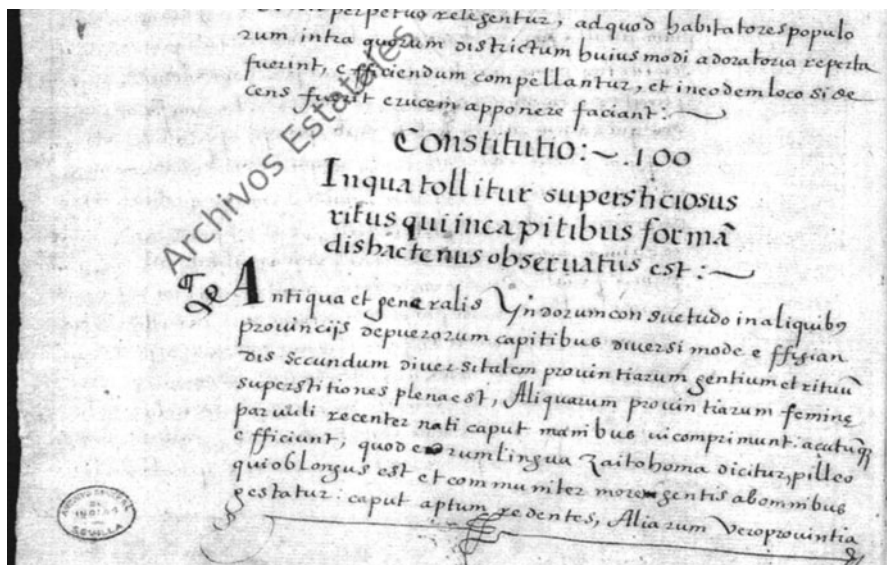 perpetuo relegentur, ad quod habitatores populo
rum intra quorum districtum huius modi adoratoria reperta
fuerint, efficiendum compellantur, et in eodem loco si de
cens fuerit crucem apponere faciant:~
Constitutio:~.100
In qua tollitur supersticiosus
ritus qui in capitibus formā
dis hactenus obseruatus est:~
Antiqua et generalis Yndorum consuetudo in aliquibus
prouincijs de puerorum capitibus diuersi mode effigian
dis secundum diuersitatem prouintiarum gentium et rituū
superstitiones plena est, Aliquarum prouintiarum feminę
paruuli recenter nati caput manibus ui comprimunt: acutūq
efficiunt, quod eorum lingua Zaitohoma dicitur, pilleo
qui oblongus est et communiter more gentis ab omnibus
gestatur: caput aptum redentes, Aliarum Vero prouintia
Archivos Estatales
ARCHIVO GENERAL
DE
INDIAS
SEVILLA